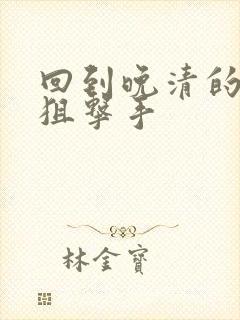 回到晚清的
狙擊手
林金寶